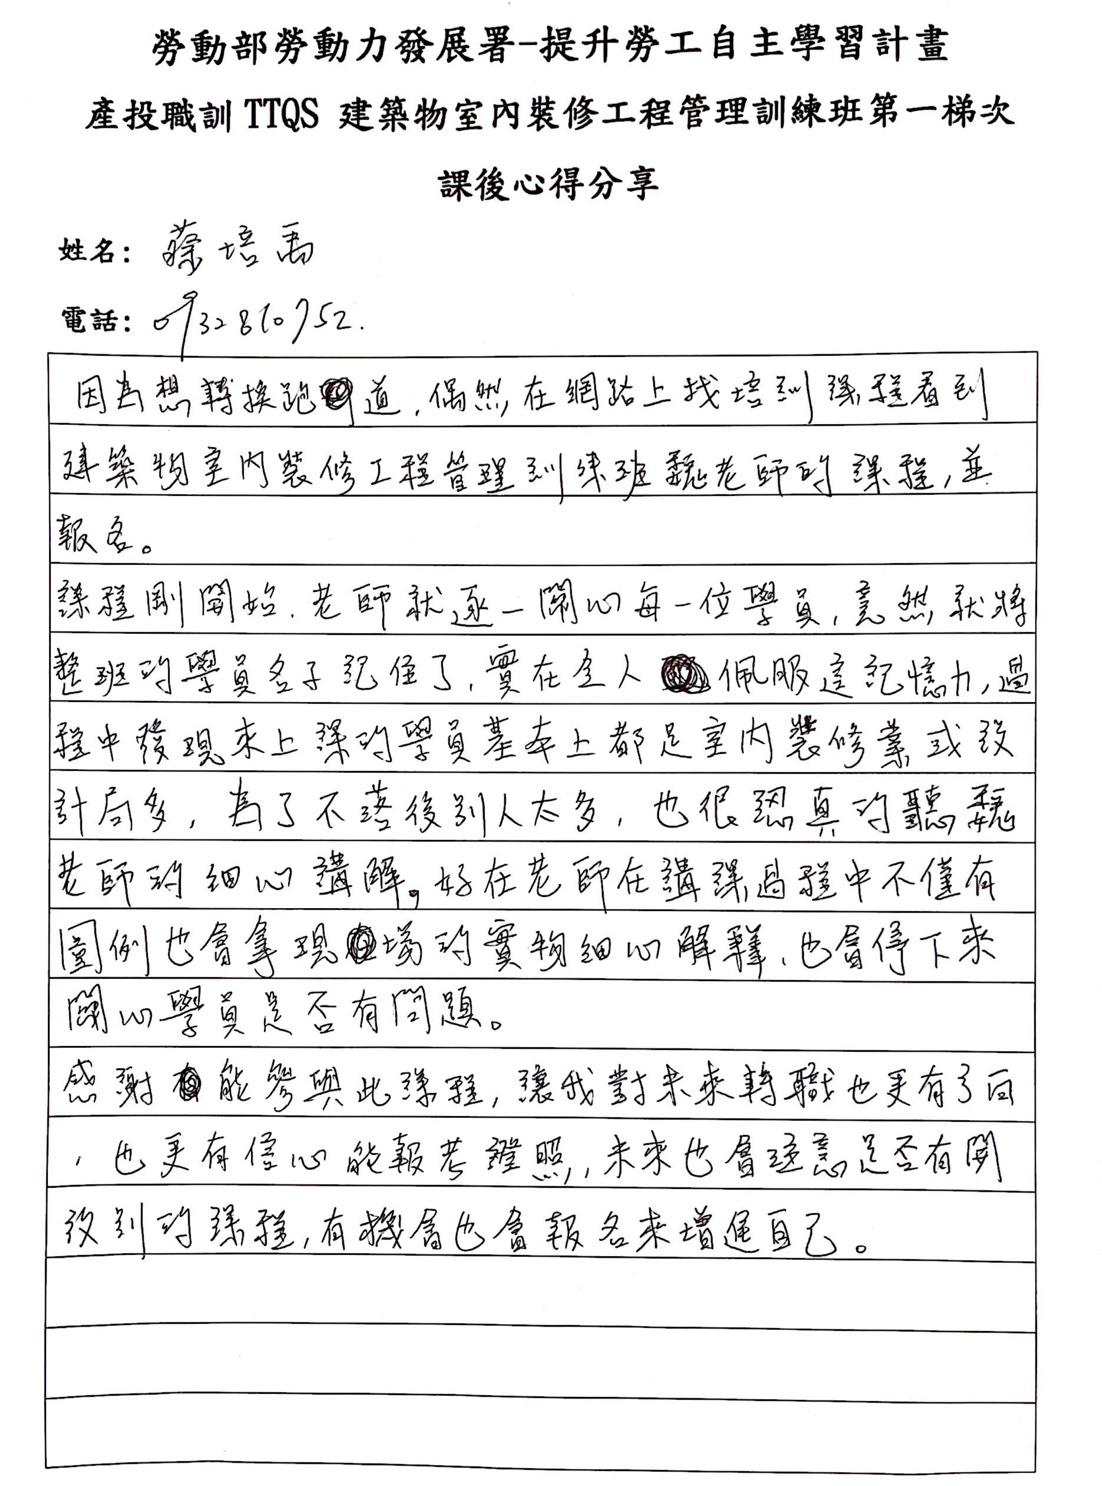 勞動部勞動力發展署-提升勞工自主學習計畫
產投職訓 TTQS 建築物室內裝修工程管理訓練班第一梯次
課後心得分享
姓名：蔡培禹
電話：0932810752.
因為想轉換跑道，偶然在網路上找培訓課程看到
建築物室內裝修工程管理訓練班魏老師的課程，並
報名。
課程剛開始．老師就逐一關心每一位學員，竟然就將
整班的學員名子記住了，實在令人佩服這記憶力，過
程中發現來上課的學員基本上都是室內裝修業或設
計局多，為了不落後別人太多，也很認真的聽魏
老師的細心講解。好在老師在講課過程中不僅有
圖例也會拿現場的實物細心解釋，也會停下來
關心學員是否有問題。
感謝能參與此課程，讓我對未來轉職也更有了向
，也更有信心能報考證照，未來也會注意是否有開
設別的課程，有機會也會報名來增進自己。